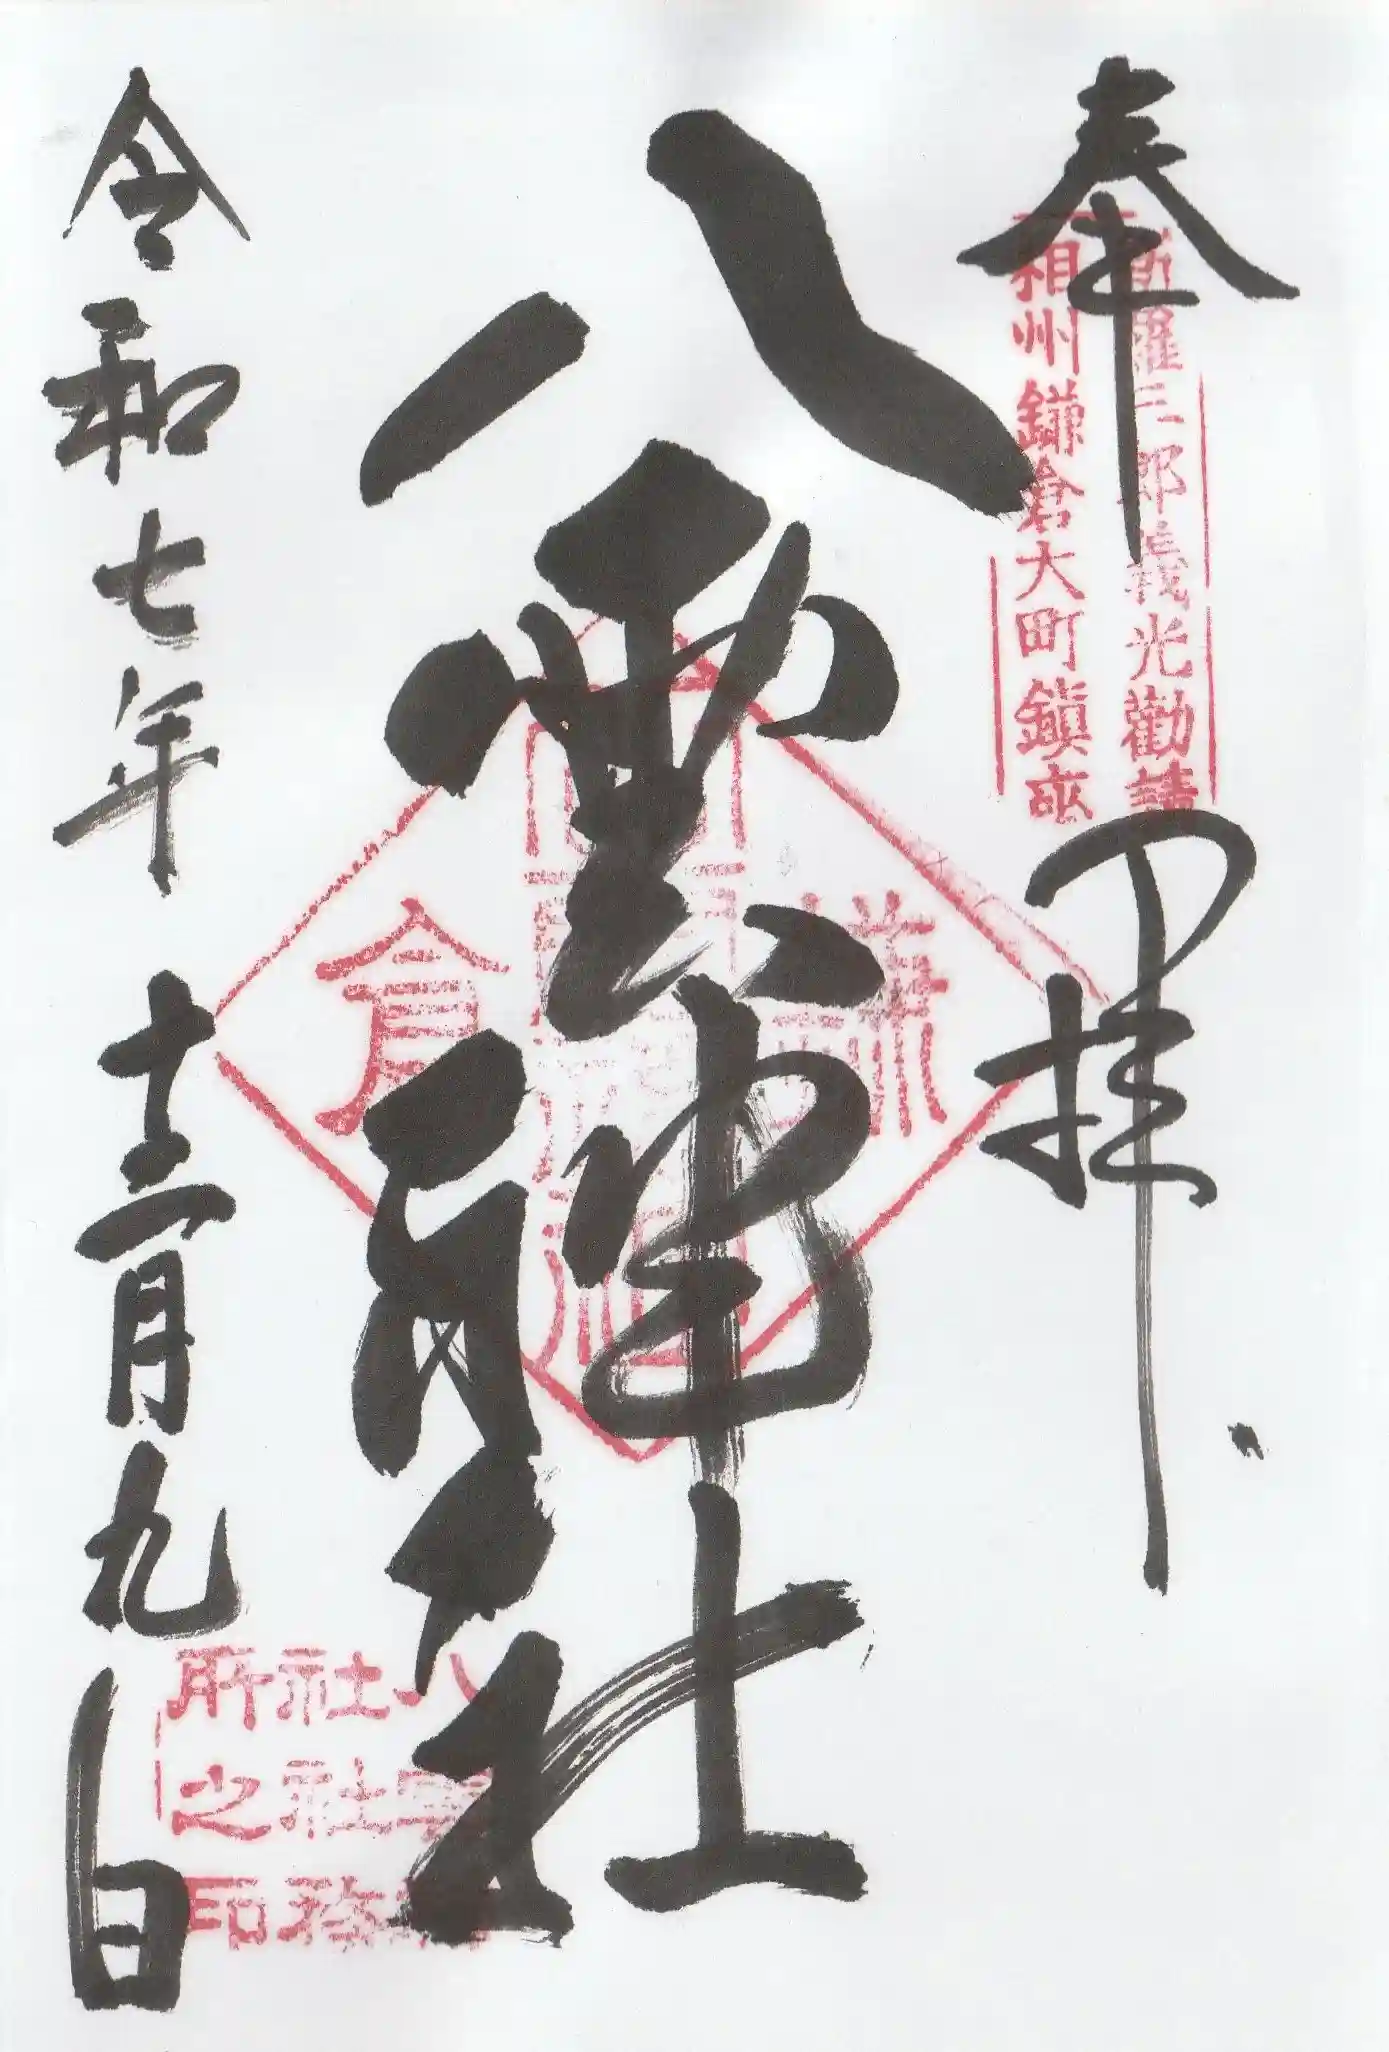 奉拝
新羅三郎義光勸請
相州鎌倉大町鎭座
八雲神社
鎌倉
令和七年十二月九日
八雲神
社社務
所之印